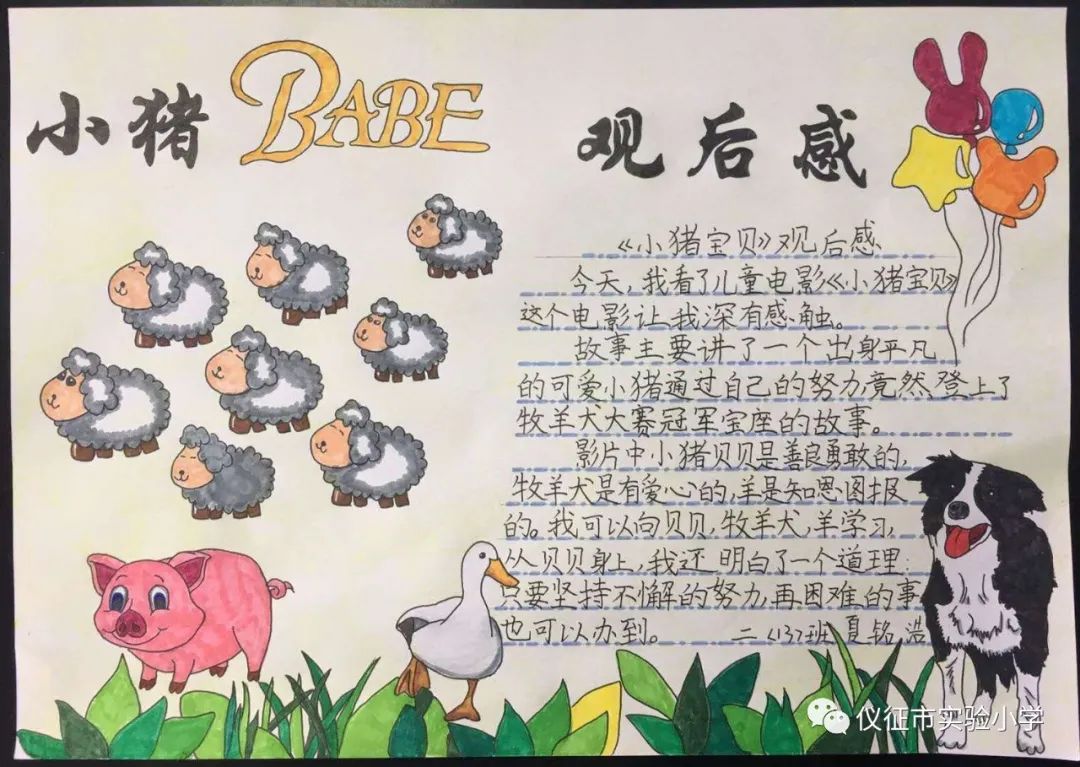 小猪 BABE 观后感
《小猪宝贝》观后感
今天，我看了儿童电影《小猪宝贝》
这个电影让我深有感触。
故事主要讲了一个出身平凡
的可爱小猪通过自己的努力竟然登上了
牧羊犬大赛冠军宝座的故事。
影片中小猪贝贝是善良勇敢的，
牧羊犬是有爱心的，羊是知恩图报
的。我可以向贝贝，牧羊犬，羊学习，
从贝贝身上，我还明白了一个道理：
只要坚持不懈的努力，再困难的事
也可以办到。 二（13）班 夏铭浩
仪征市实验小学